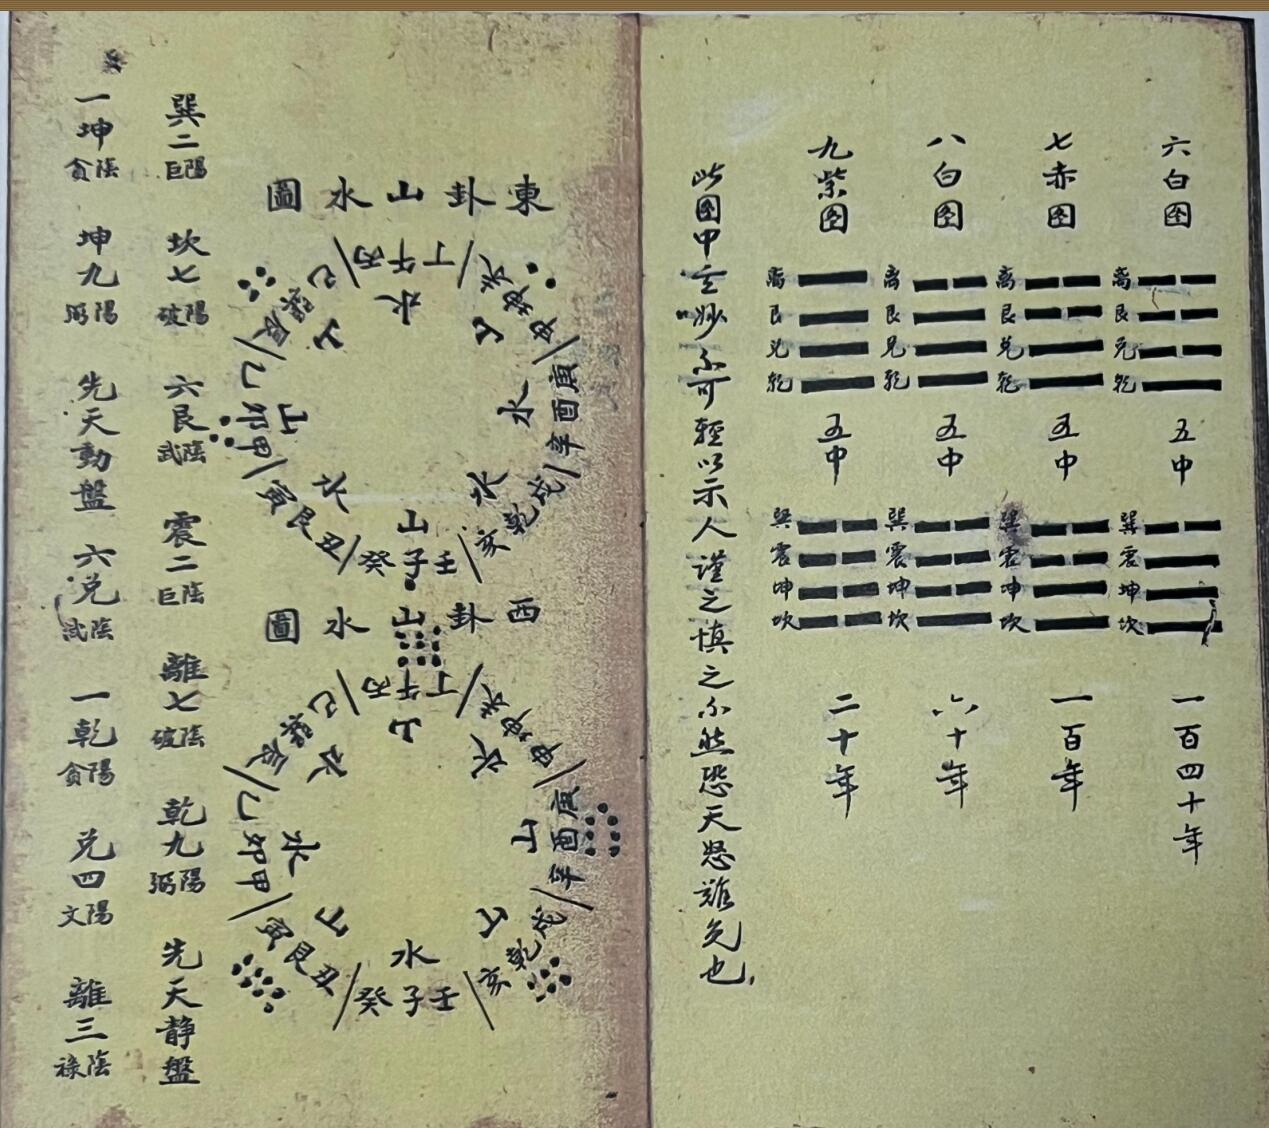 六白图
离
艮
兑
乾
五中
巽
震
坤
坎
一百四十年
七赤图
离
艮
兑
乾
五中
巽
震
坤
坎
一百年
八白图
离
艮
兑
乾
五中
巽
震
坤
坎
六十年
九紫图
离
艮
兑
乾
五中
巽
震
坤
坎
二十年
此图中玄妙不可輕以示人謹之慎之不然恐天怒難免也
東卦山水圖
丙午丁
水
未坤申
山
庚酉辛
水
戌乾亥
水
壬子癸
山
丑艮寅
水
甲卯乙
山
辰巽巳
山
西卦山水圖
丙午丁
山
未坤申
水
庚酉辛
山
戌乾亥
山
壬子癸
水
丑艮寅
山
甲卯乙
水
辰巽巳
水
巽二陽巨 坎七陽破 六艮陰武 震二陰巨 離七陰破 乾九陽弼 先天静盤
一坤陰貪 坤九陽弼 先天動盤 六兑陰武 一乾陽貪 兑四陽文 離三陰祿